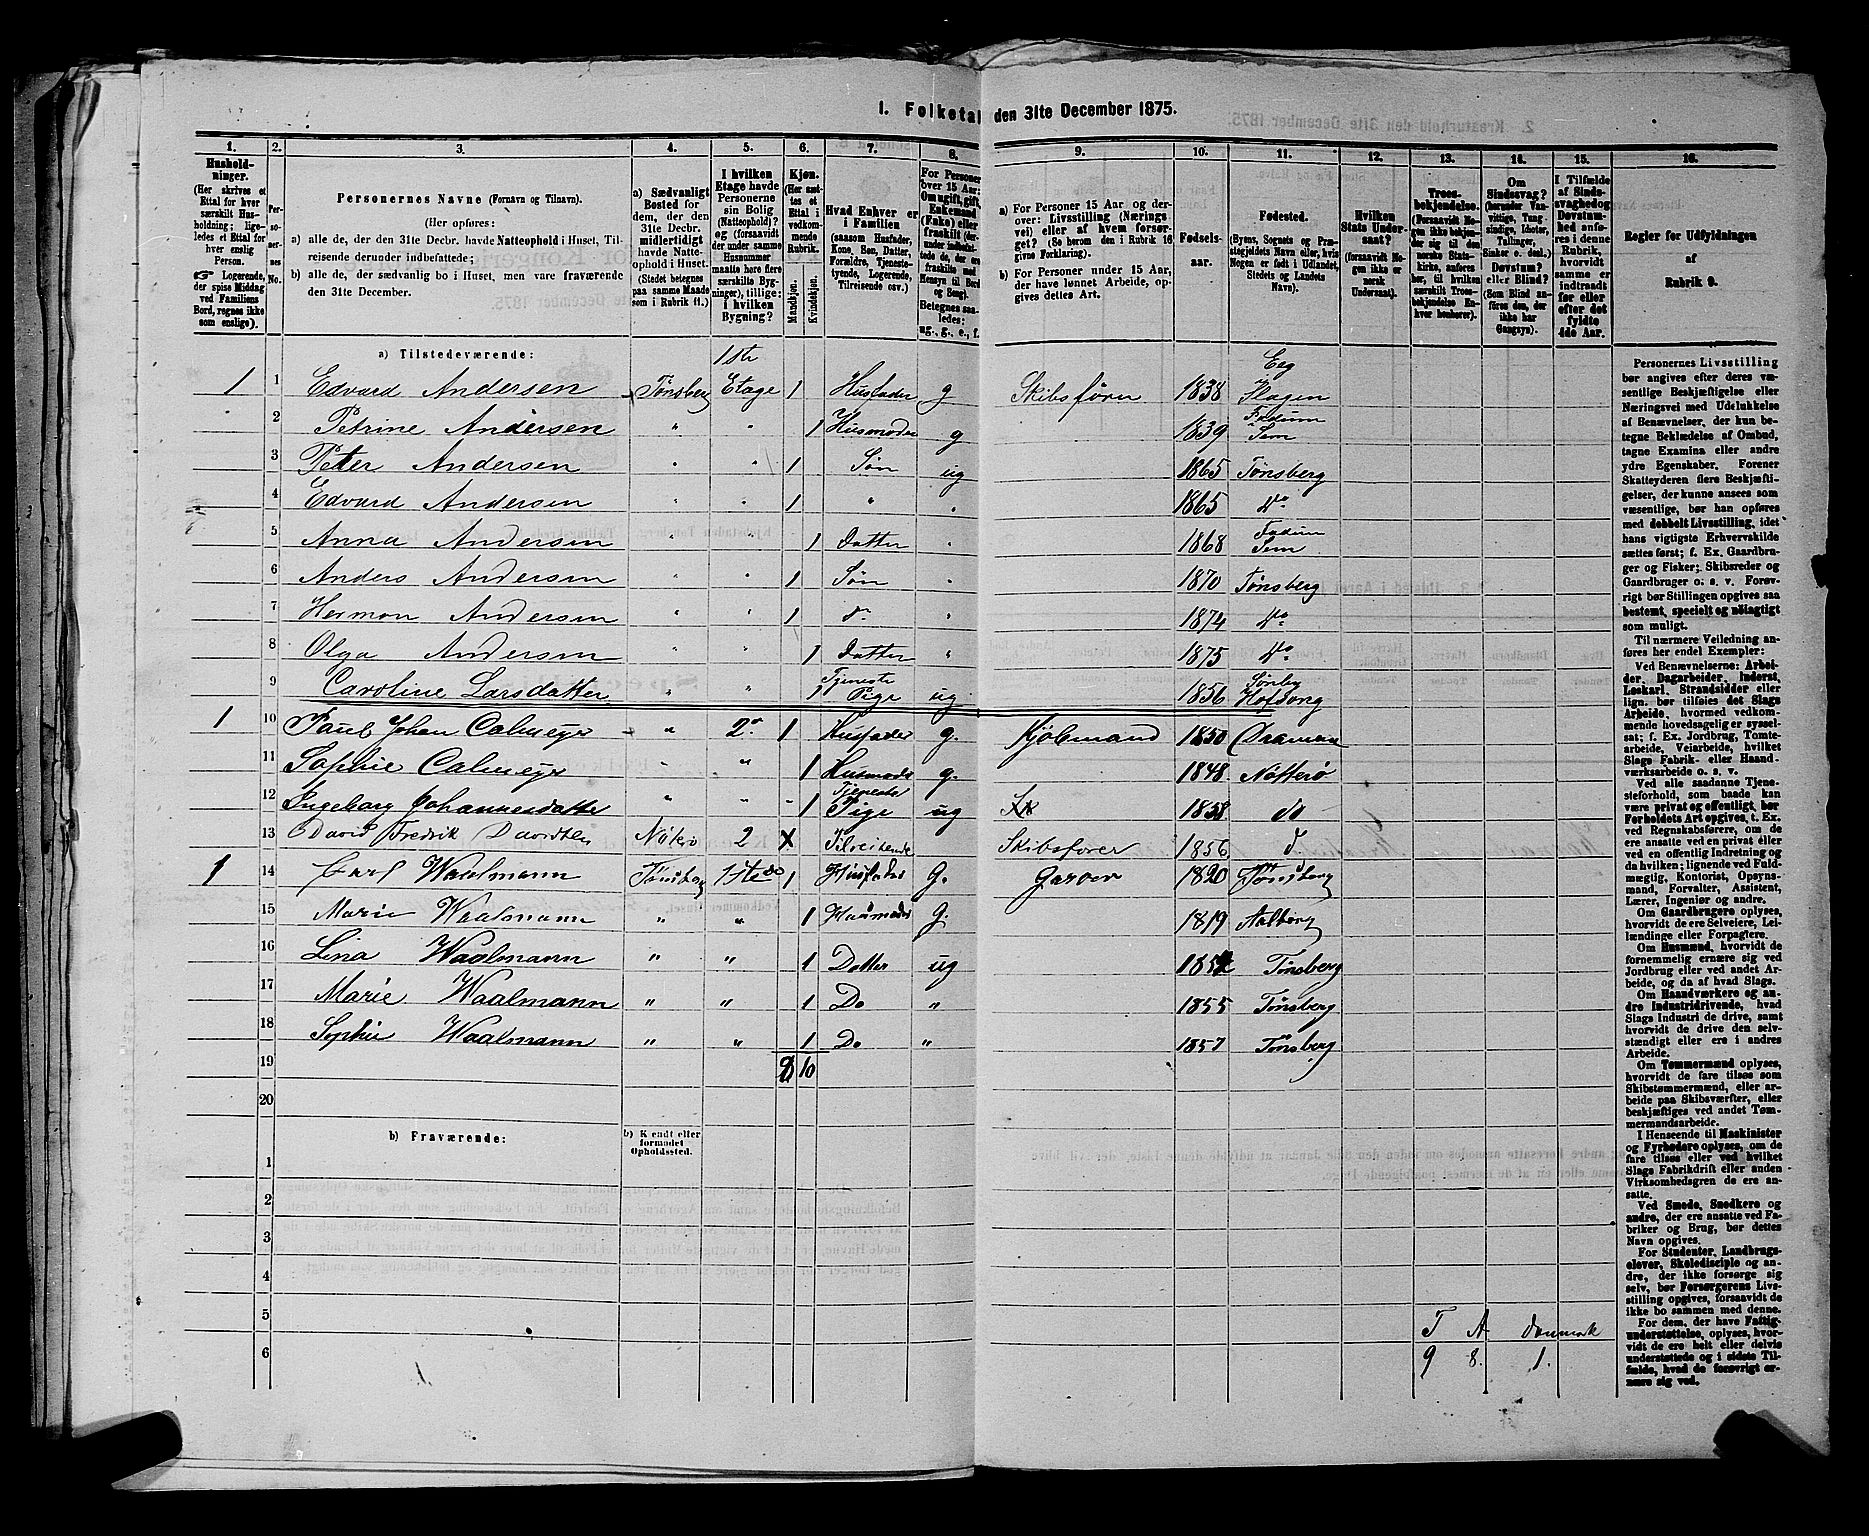 1. Folketal den 31te December 1875.
1. 2. 3. 4. 5. 6. 7. 8. 9. 10. 11. 12. 13. 14. 15. 16.
Hushold-
ninger.
(Her skrives et
Ettal for hver
særskilt Hus-
holdning; lige-
ledes et Ettal for
hver enslig
Person.
☞ Logerende,
der spise Middag
ved Familiens
Bord, regnes ikke
som enslige).
Per-
so-
ner-
nes
No.
Personernes Navne (Fornavn og Tilnavn).
(Her opføres:
a) alle de, der den 31te Decbr. havde Natteophold i Huset, Til-
reisende derunder indbefattede;
b) alle de, der sædvanlig bo i Huset, men vare fraværende
den 31te December.
a) Sædvanligt
Bosted for
dem, der den
31te Decbr.
midlertidigt
havde Natte-
ophold i Huset.
(Stedet betegnes
paa samme Maade
som i Rubrik 11.)
I hvilken
Etage havde
Personerne
sin Bolig
(Natteophold)?
og (forsaavidt
der under samme
Husnummer
maatte høre flere
særskilte Byg-
ninger), tillige:
i hvilken
Bygning?
Kjøn.
(Her sæt-
tes et
Ettal i
vedkom-
mende
Rubrik.
Mandkjøn.
Kvindekjøn.
Hvad Enhver er
i Familien
(saasom Husfader,
Kone, Søn, Datter,
Forældre, Tjeneste-
tyende, Logerende,
Tilreisende osv.)
For Personer
over 15 Aar:
Om ugift, gift,
Enkemand
(Enke) eller
fraskilt
Betegnes saa-
ledes:
ug., g., e., f.
a) For Personer 15 Aar og der-
over: Livsstilling (Nærings-
vei) eller af hvem forsør-
get? (Se herom den i Rubrik 16
givne Forklaring).
b) For Personer under 15 Aar,
der have lønnet Arbeide, op-
gives dettes Art.
Fødsels-
aar.
Fødested.
(Byens, Sognets og Præ-
stegjeldets Navn eller, hvis
Nogen er født i Udlandet,
Stedets og Landets
Navn).
Hvilken
Stats Under-
saat?
(forsaavidt No-
gen ikke er
norsk
Undersaat).
Troes-
bekjendelse.
(Forsaavidt No-
gen ikke beken-
der sig til den
norske Stats-
kirke, anføres
her, til hvilken
særskilt Troes-
bekjendelse En-
hver henhører).
Om
Sindssvag?
(herunder Van-
vittige, Tung-
sindige, Idioter,
Tullinger,
Sinker o. desl.)
Døvstum?
eller Blind?
(Som Blind an-
føres den, der
ikke har
Gangsyn).
I Tilfælde
af Sinds-
svaghed og
Døvstum-
hed anfø-
res i denne
Rubrik,
hvorvidt
samme er
indtraadt
før eller
efter det
fyldte
4de Aar.
Regler for Udfyldningen
af
Rubrik 9.
a) Tilstedeværende:
1 1 Edvard Andersen Tønsberg 1ste Etage 1 Husfader g Skibsfører 1838 Eeg Slagen
2 Petrine Andersen " " 1 Husmoder g 1839 Fadum Sem
3 Peter Andersen " " 1 Søn ug 1865 Tønsberg
4 Edvard Andersen " " 1 " " 1865 do
5 Anna Andersen " " 1 Datter " 1868 Fadum Sem
6 Anders Andersen " " 1 Søn " 1870 Tønsberg
7 Herman Andersen " " 1 do " 1874 do
8 Olga Andersen " " 1 Datter " 1875 do
9 Caroline Larsdatter " " 1 Tjeneste Pige ug 1856 Hof
1 10 Paul Johan Calmeyer " 2. 1 Husfader g. Kjøbmand 1850 Drammen
11 Sophie Calmeyer " " 1 Husmoder g. 1848 Nøtterø
12 Ingeborg Johannesdatter " " 1 Tjeneste Pige ug 1858 do
13 David Fredrik 2 X Tilreisende Skibsfører 1856 d
1 14 Carl Waalmann Tønsberg 1ste 1 Husfader G. Garver 1820 Tønsberg
15 Marie Waalmann " " 1 Husmoder G. 1819 Aalborg
16 Lina Waalmann " " 1 Datter ug 1852 Tønsberg
17 Marie Waalmann " " 1 Do " 1855 Tønsberg
18 Sophie Waalmann " " 1 Do " 1857 Tønsberg
19 10
20
b) Fraværende:
b) Kjendt eller
formodet
Opholdssted.
1
2
3
4
5
6
T A Danmark
9 8. 1.
Personernes Livsstilling
bør angives efter deres væ-
sentlige Beskjæftigelse eller
Næringsvei med Udelukkelse
af Benævnelser, der kun be-
tegne Beklædelse af Ombud,
tagne Examina eller andre
ydre Egenskaber. Forener
Skatteyderen flere Beskjæfti-
gelser, der kunne ansees som
væsentlige, bør han opføres
med dobbelt Livsstilling, idet
hans vigtigste Erhvervskilde
sættes først; f. Ex. Gaardbru-
ger og Fisker; Skibsreder og
Gaardbruger o. s. v. Forøv-
rigt bør Stillingen opgives saa
bestemt, specielt og nøiagtigt
som muligt.
Til nærmere Veiledning an-
føres her endel Exempler:
Ved Benævnelserne: Arbei-
der, Dagarbeider, Inderst,
Løskarl, Strandsidder eller
lign. bør tilføies det Slags
Arbeide, hvormed vedkom-
mende hovedsagelig er syssel-
sat; f. Ex. Jordbrug, Tomte-
arbeide, Veiarbeide, hvilket
Slags Fabrik- eller Haand-
værksarbeide o. s. v.
Ved alle saadanne Tjene-
steforhold, som baade kan
være privat og offentligt, bør
Forholdets Art opgives, t. Ex.
ved Regnskabsførere, om de
ere ansatte ved en privat eller
ved en offentlig Indretning og
da hvilken; lignende ved Fuld-
mægtig, Kontorist, Opsyns-
mand, Forvalter, Assistent,
Lærer, Ingeniør og andre.
Om Gaardbrugere oplyses,
hvorvidt de ere Selveiere, Lei-
lændinge eller Forpagtere.
Om Husmænd, hvorvidt de
fornemmelig ernære sig ved
Jordbrug eller ved andet Ar-
beide, og da af hvad Slags.
Om Haandværkere og an-
dre Industridrivende, hvad
Slags Industri de drive, samt
hvorvidt de drive den selv-
stændigt eller ere i andres
Arbeide.
Om Tømmermænd oplyses,
hvorvidt de fare tilsøs som
Skibstømmermænd, eller ar-
beide paa Skibsværfter, eller
beskjæftiges ved andet Tøm-
mermandsarbeide.
I Henseende til Maskinister
og Fyrbødere oplyses, om de
fare tilsøs eller ved hvilket
Slags Fabrikdrift eller anden
Virksomhedsgren de ere an-
satte.
Ved Smede, Snedkere og
andre, der ere ansatte ved Fa-
briker og Brug, bør dettes
Navn opgives.
For Studenter, Landbrugs-
elever, Skoledisciple og an-
dre, der ikke forsørge sig
selv, bør Forsørgerens Livs-
stilling opgives, forsaavidt de
ikke bo sammen med denne.
For dem, der have Fattig-
understøttelse, oplyses, hvor-
vidt de ere helt eller delvis
understøttede og i sidste Til-
fælde, hvad de forøvrigt er-
nære sig ved.